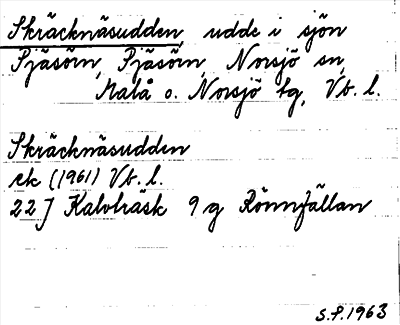 Skräcknäsudden, udde i sjön
Pjäsörn, Pjäsörn, Norsjö sn,
Malå o. Norsjö tg, Vb. l.
Skräcknäsudden
ek (1961) Vb. l.
22 J Kalvträsk 9 g Rönnfällan
S.P. 1963